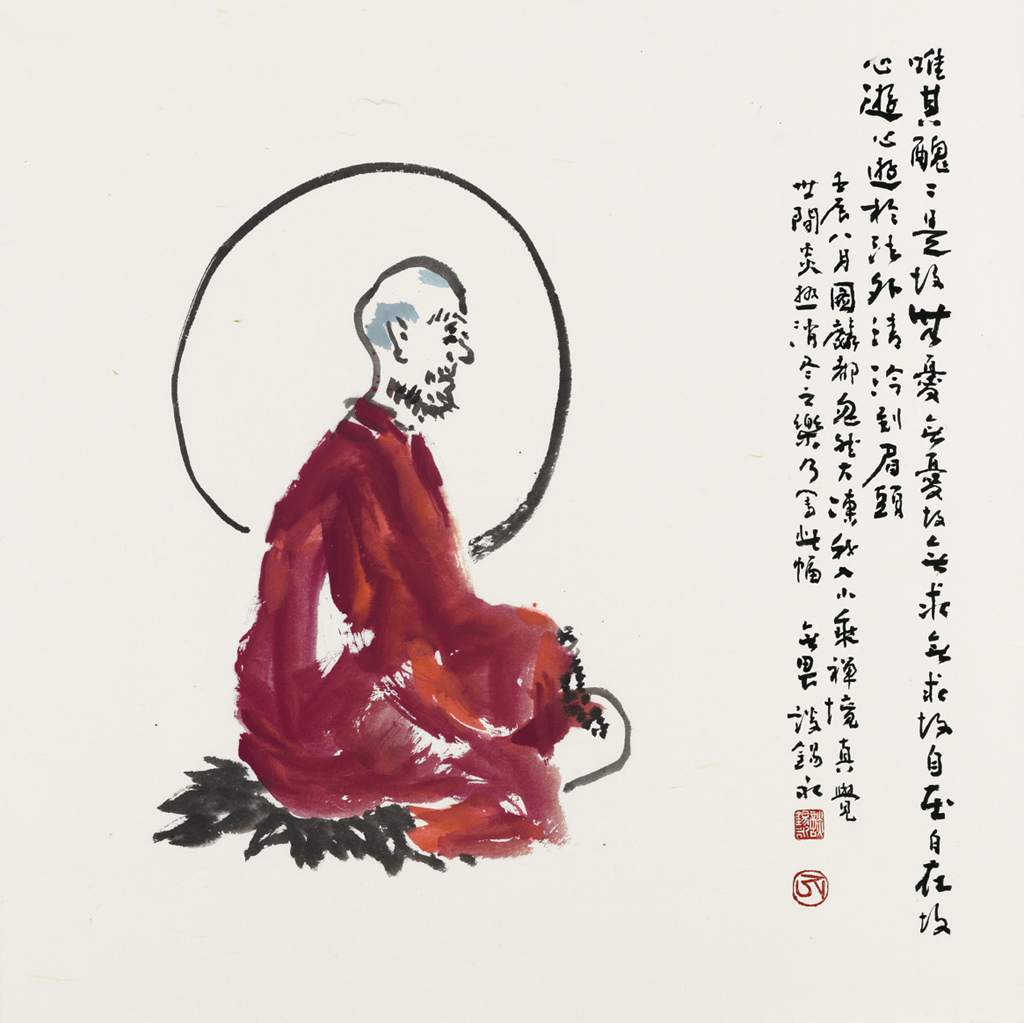 唯其醜〻是故無憂無憂故無求無求故自在自在故
心遊心遊於法外清泠到眉頭
壬辰八月圖麟都忽然大凍我入小乘禪境真覺
世間炎熱消尽之樂乃寫此幅 無畏談錫永
談錫永